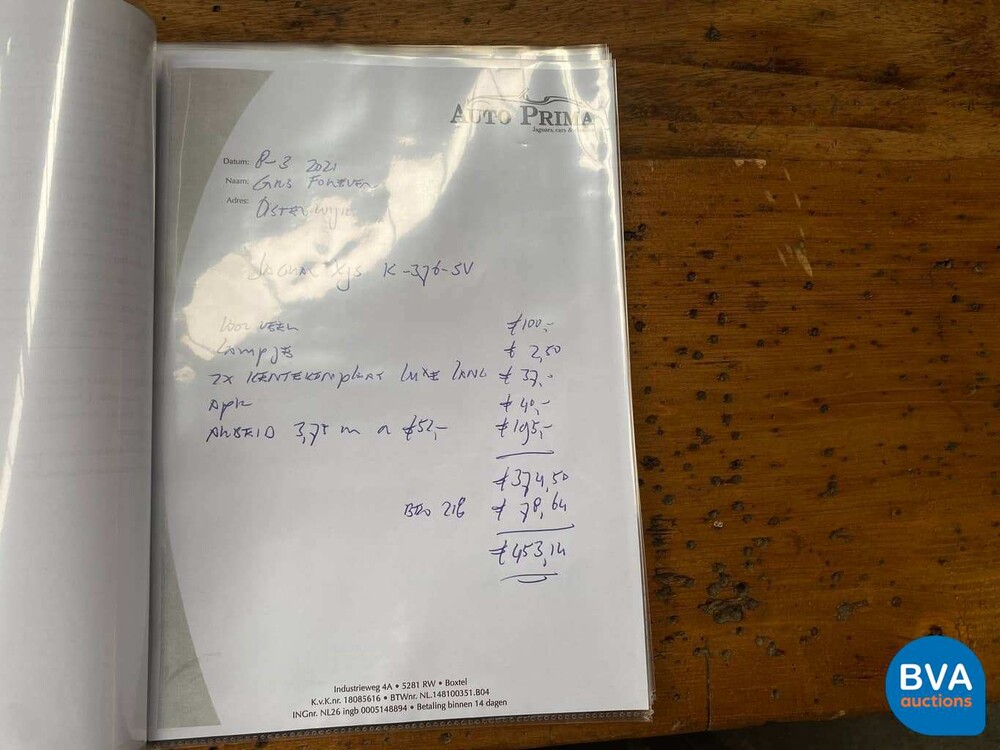 AUTO PRIMA
Jaguars, cars &
Datum: 8-3 2021
Naam: GRS FOREVER
Adres: OSTERWIJK
JAGUAR XJS K-376-SV
VOOR VEER €100,-
LAMPJE € 2,50
2X KENTEKENPLAAT LUXE LANG € 37,-
APK € 40,-
ARBEID 3,75 m a €52,- €195,-
€374,50
BTW 21% € 78,64
€453,14
Industrieweg 4A • 5281 RW • Boxtel
K.v.K.nr. 18085616 • BTWnr. NL.148100351.B04
INGnr. NL26 ingb 0005148894 • Betaling binnen 14 dagen
BVA
auctions